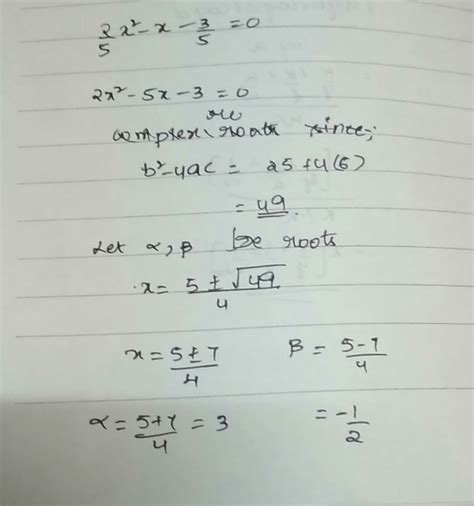 2/5 x² - x - 3/5 = 0
2x² - 5x - 3 = 0
no
complex roots since;
b² - 4ac = 25 + 4(6)
= 49.
Let α, β be roots
x = (5 ± √49)/4
x = (5 ± 7)/4 β = (5 - 7)/4
α = (5 + 7)/4 = 3 = -1/2